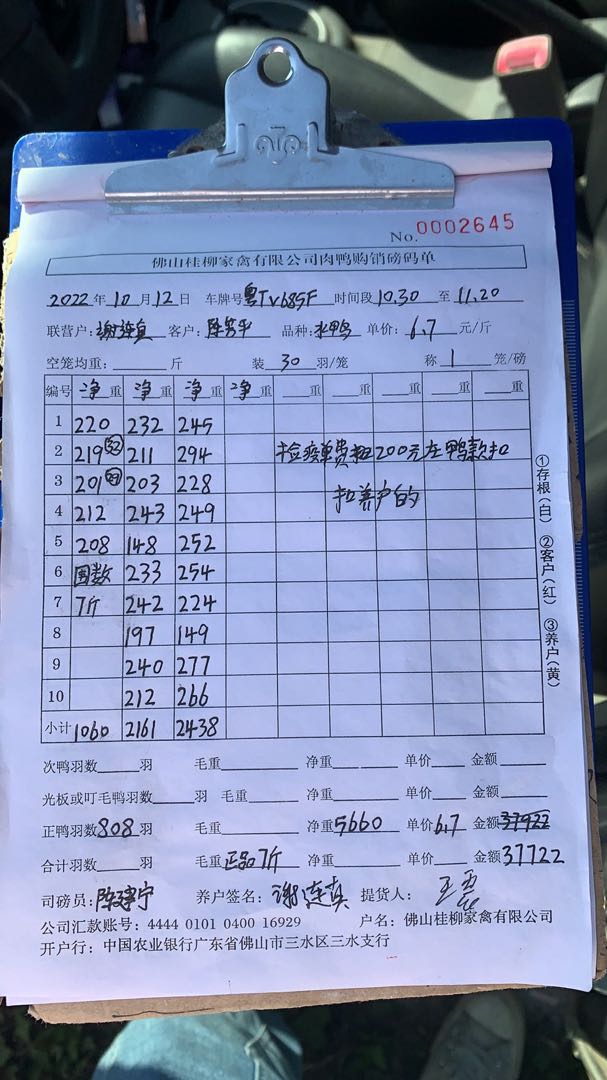 No. 0002645
佛山桂柳家禽有限公司肉鸭购销磅码单
2022年10月12日 车牌号粤TV685F 时间段10.30至11.20
联营户:谢连真 客户: 品种:水鸭 单价:6.7元/斤
空笼均重:____斤 装30羽/笼 称1笼/磅
编号 净重 净重 净重 净重 重 重 重 重 重
1 220 232 245
2 219 32 211 294 检疫单费扣200元在鸭款扣
3 201 203 228 扣养户的
4 212 243 249
5 208 148 252
6 数 233 254
7 7斤 242 224
8 197 149
9 240 277
10 212 266
小计 1060 2161 2438
①存根(白) ②客户(红) ③养户(黄)
次鸭羽数____羽 毛重____ 净重____ 单价____ 金额____
光板或叮毛鸭羽数____羽 毛重____ 净重____ 单价____ 金额____
正鸭羽数808羽 毛重____ 净重5660 单价6.7 金额37922
合计羽数____羽 毛重正品7斤 净重____ 单价____ 金额37722
司磅员:陈建宁 养户签名:谢连真 提货人:
公司汇款账号:4444 0101 0400 16929 户名:佛山桂柳家禽有限公司
开户行:中国农业银行广东省佛山市三水区三水支行